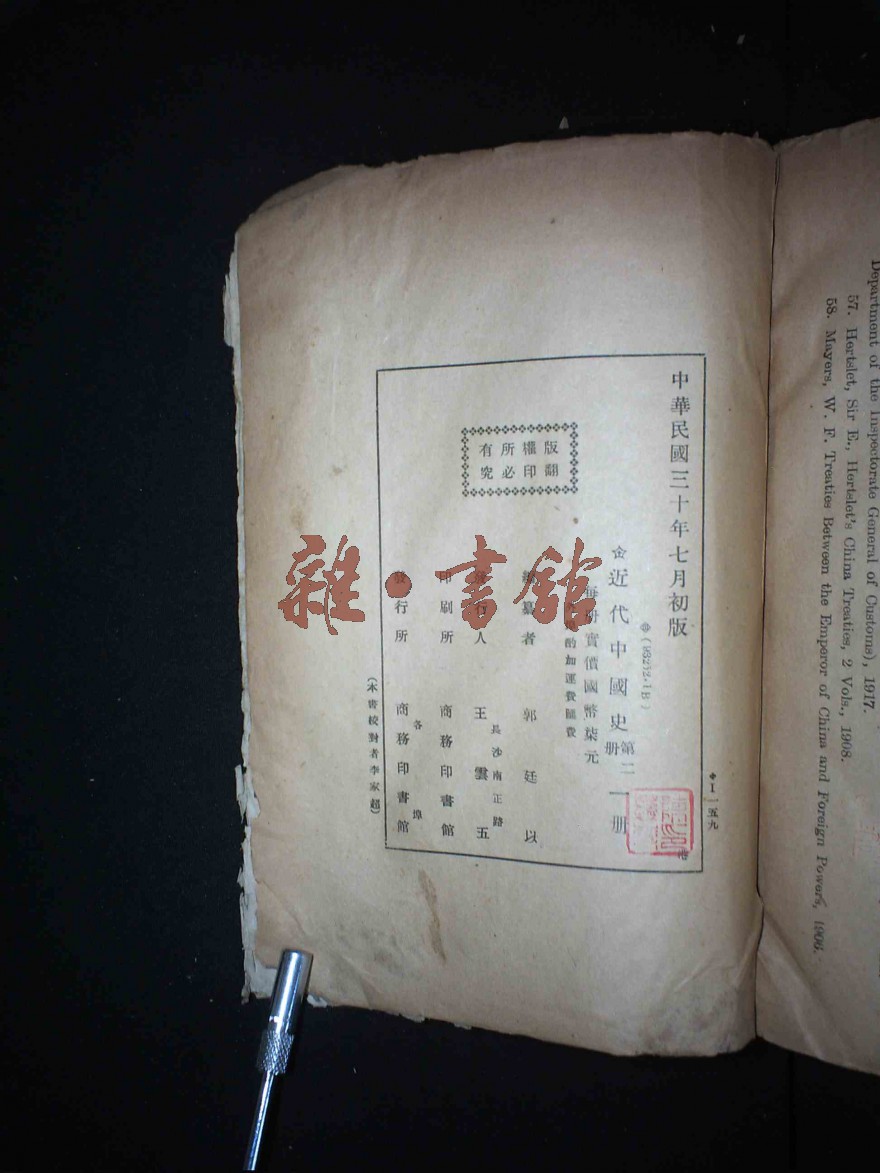 中華民國三十年七月初版
(63252.1B)
近代中國史第二册 一册
每册實價國幣柒元
酌加運費匯費
編纂者 郭廷以
發行人 王雲五
長沙南正路
印刷所 商務印書館
各埠
發行所 商務印書館
(本書校對者李家超)
版權所有
翻印必究
I一五九
港
雜·書館
Department of the Inspectorate General of Customs), 1917.
57. Hertslet, Sir E., Hertslet's China Treaties, 2 Vols., 1908.
58. Mayers, W. F. Treaties Between the Emperor of China and Foreign Powers, 1906.